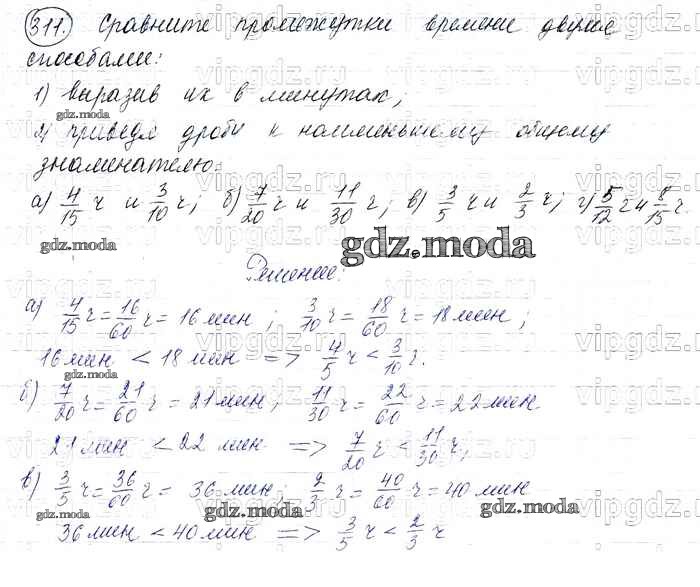 311. Сравните промежутки времени двумя
способами:
1) выразив их в минутах;
gdz.moda
2) приведя дроби к наименьшему общему
знаменателю:
а) 4/15 ч и 3/10 ч; б) 7/20 ч и 11/30 ч; в) 3/5 ч и 2/3 ч; г) 5/12 ч и 8/15 ч.
gdz.moda gdz.moda
Решение:
а) 4/15 ч = 16/60 ч = 16 мин; 3/10 ч = 18/60 ч = 18 мин;
16 мин < 18 мин => 4/5 ч < 3/10 ч.
gdz.moda
б) 7/20 ч = 21/60 ч = 21 мин; 11/30 ч = 22/60 ч = 22 мин
21 мин < 22 мин => 7/20 ч < 11/30 ч;
в) 3/5 ч = 36/60 ч = 36 мин; 2/3 ч = 40/60 ч = 40 мин
gdz.moda gdz.moda
36 мин < 40 мин => 3/5 ч < 2/3 ч